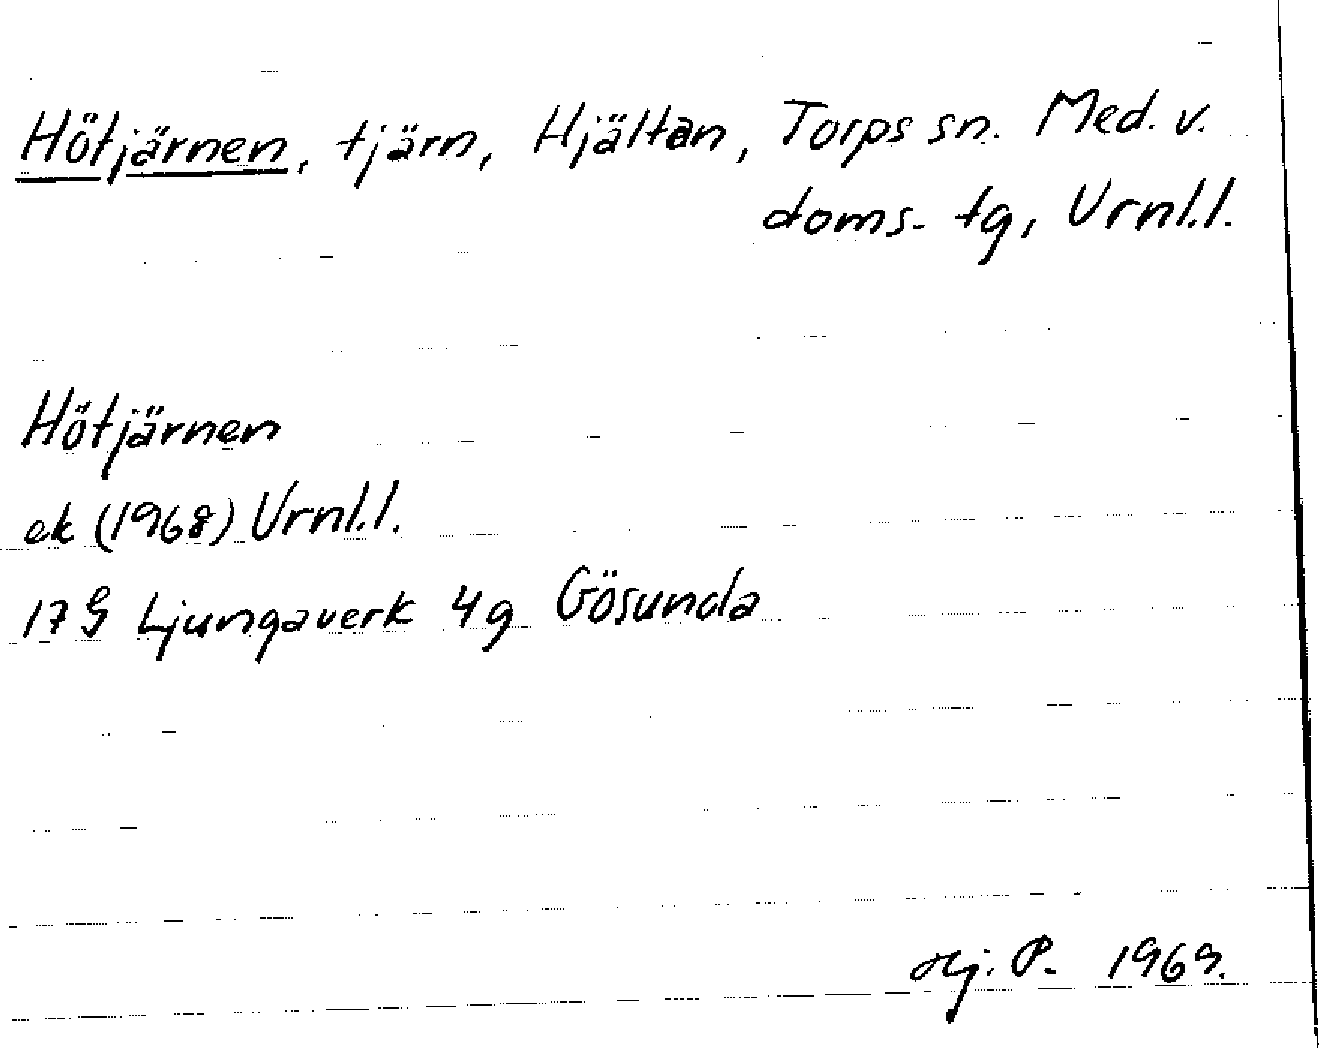 Hötjärnen, tjärn, Hjältan, Torps sn. Med. v.
doms. tg, Urnl.l.
Hötjärnen
ek (1968) Urnl.l.
17 G Ljungaverk 4g Gösunda
Hj. P. 1969.